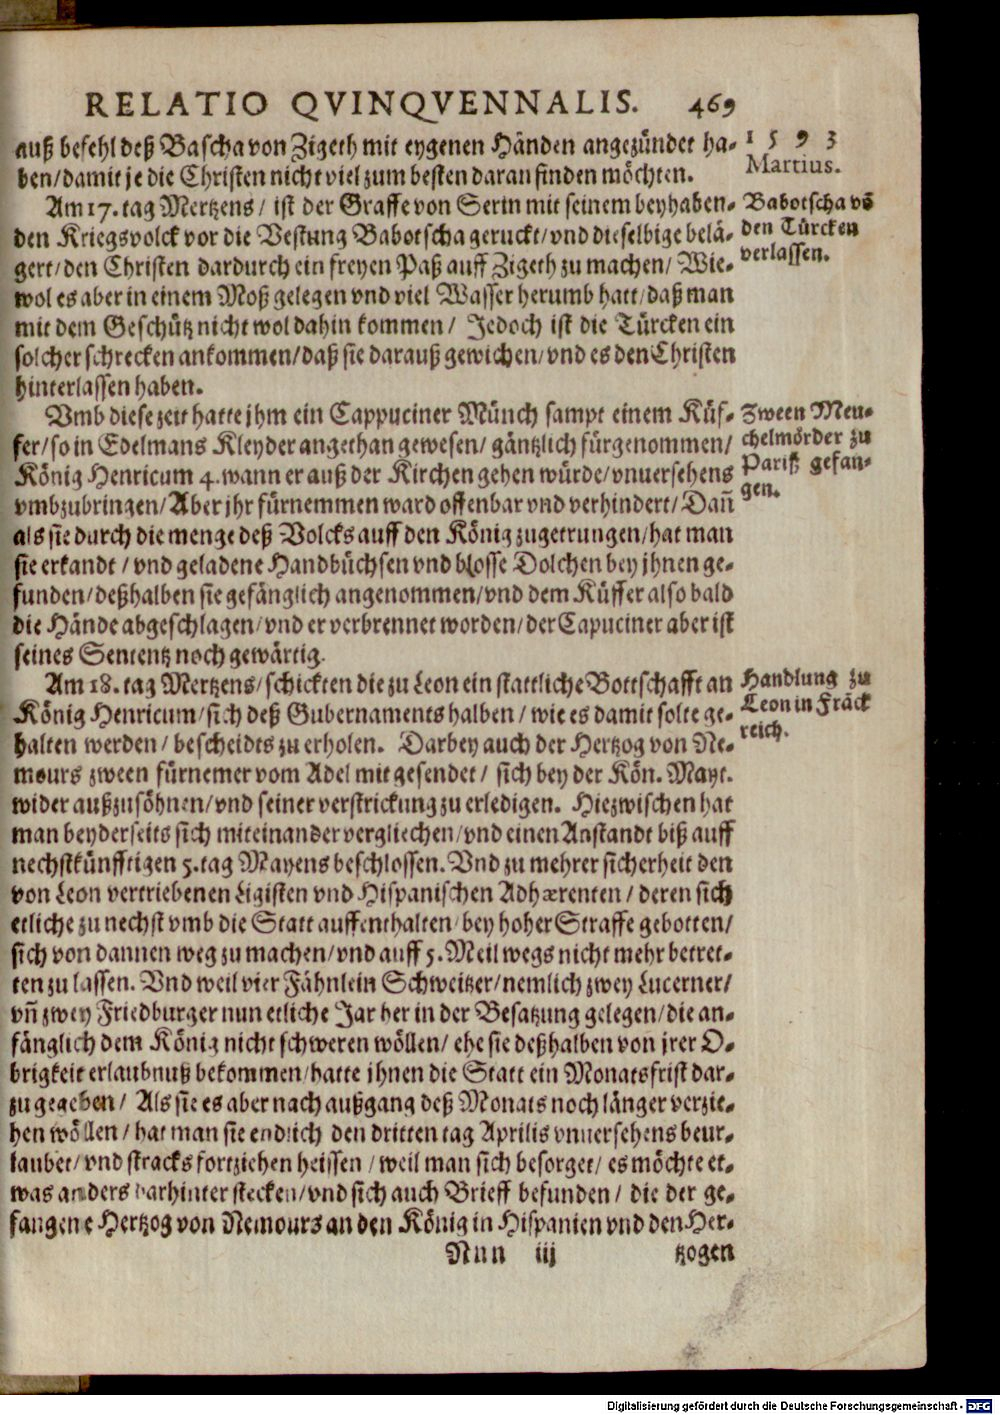 RELATIO QVINQVENNALIS. 469
1593
Martius.
auß befehl deß Bascha von Zigeth mit eygenen Händen angezündet ha-
ben/damit je die Christen nicht viel zum besten daran finden möchten.
Am 17. tag Mertzens/ ist der Graffe von Serin mit seinem beyhaben-
den Kriegsvolck vor die Vestung Babotscha geruckt/vnd dieselbige belä-
gert/den Christen dardurch ein freyen Paß auff Zigeth zu machen/ Wie-
wol es aber in einem Moß gelegen vnd viel Wasser herumb hatt/daß man
mit dem Geschütz nicht wol dahin kommen/ Jedoch ist die Türcken ein
solcher schrecken ankommen/daß sie darauß gewichen/vnd es den Christen
hinterlassen haben.
Babotscha võ
den Türcken
verlassen.
Vmb diese zeit hatte jhm ein Cappuciner Münch sampt einem Küf-
fer/so in Edelmans Kleyder angethan gewesen/ gäntzlich fürgenommen/
König Henricum 4. wann er auß der Kirchen gehen würde/vnuersehens
vmbzubringen/Aber jhr fürnemmen ward offenbar vnd verhindert/Dañ
als sie durch die menge deß Volcks auff den König zugetrungen/hat man
sie erkandt/vnd geladene Handbüchsen vnd blosse Dolchen bey jhnen ge-
funden/deßhalben sie gefänglich angenommen/vnd dem Küffer also bald
die Hände abgeschlagen/vnd er verbrennet worden/der Capuciner aber ist
seines Sententz noch gewärtig.
Zween Meu-
chelmörder zu
Pariß gefan-
gen.
Am 18. tag Mertzens/schickten die zu Leon ein stattliche Bottschafft an
König Henricum/sich deß Gubernaments halben/ wie es damit solte ge-
halten werden/ bescheidts zu erholen. Darbey auch der Hertzog von Ne-
mours zween fürnemer vom Adel mit gesendet/ sich bey der Kön. Mayt.
wider außzusöhnen/vnd seiner verstrickung zu erledigen. Hiezwischen hat
man beyderseits sich miteinander vergliechen/vnd einen Anstandt biß auff
nechstkünfftigen 5. tag Mayens beschlossen. Vnd zu mehrer sicherheit den
von Leon vertriebenen Ligisten vnd Hispanischen Adhærenten/ deren sich
etliche zu nechst vmb die Statt auffenthalten/bey hoher Straffe gebotten/
sich von dannen weg zu machen/vnd auff 5. Meil wegs nicht mehr betret-
ten zu lassen. Vnd weil vier Fähnlein Schweitzer/nemlich zwey Lucerner/
vñ zwey Friedburger nun etliche Jar her in der Besatzung gelegen/die an-
fänglich dem König nicht schweren wöllen/ ehe sie deßhalben von jrer O-
brigkeit erlaubnuß bekommen/hatte jhnen die Statt ein Monatsfrist dar-
zu gegeben/ Als sie es aber nach außgang deß Monats noch länger verzie-
hen wöllen/hat man sie endlich den dritten tag Aprilis vnuersehens beur-
laubet/vnd stracks fortziehen heissen/weil man sich besorget/ es möchte et-
was anders darhinter stecken/vnd sich auch Brieff befunden/ die der ge-
fangene Hertzog von Nemours an den König in Hispanien vnd den Her-
Handlung zu
Leon in Fräck
reich.
Nnn iij tzogen
Digitalisierung gefördert durch die Deutsche Forschungsgemeinschaft - DFG